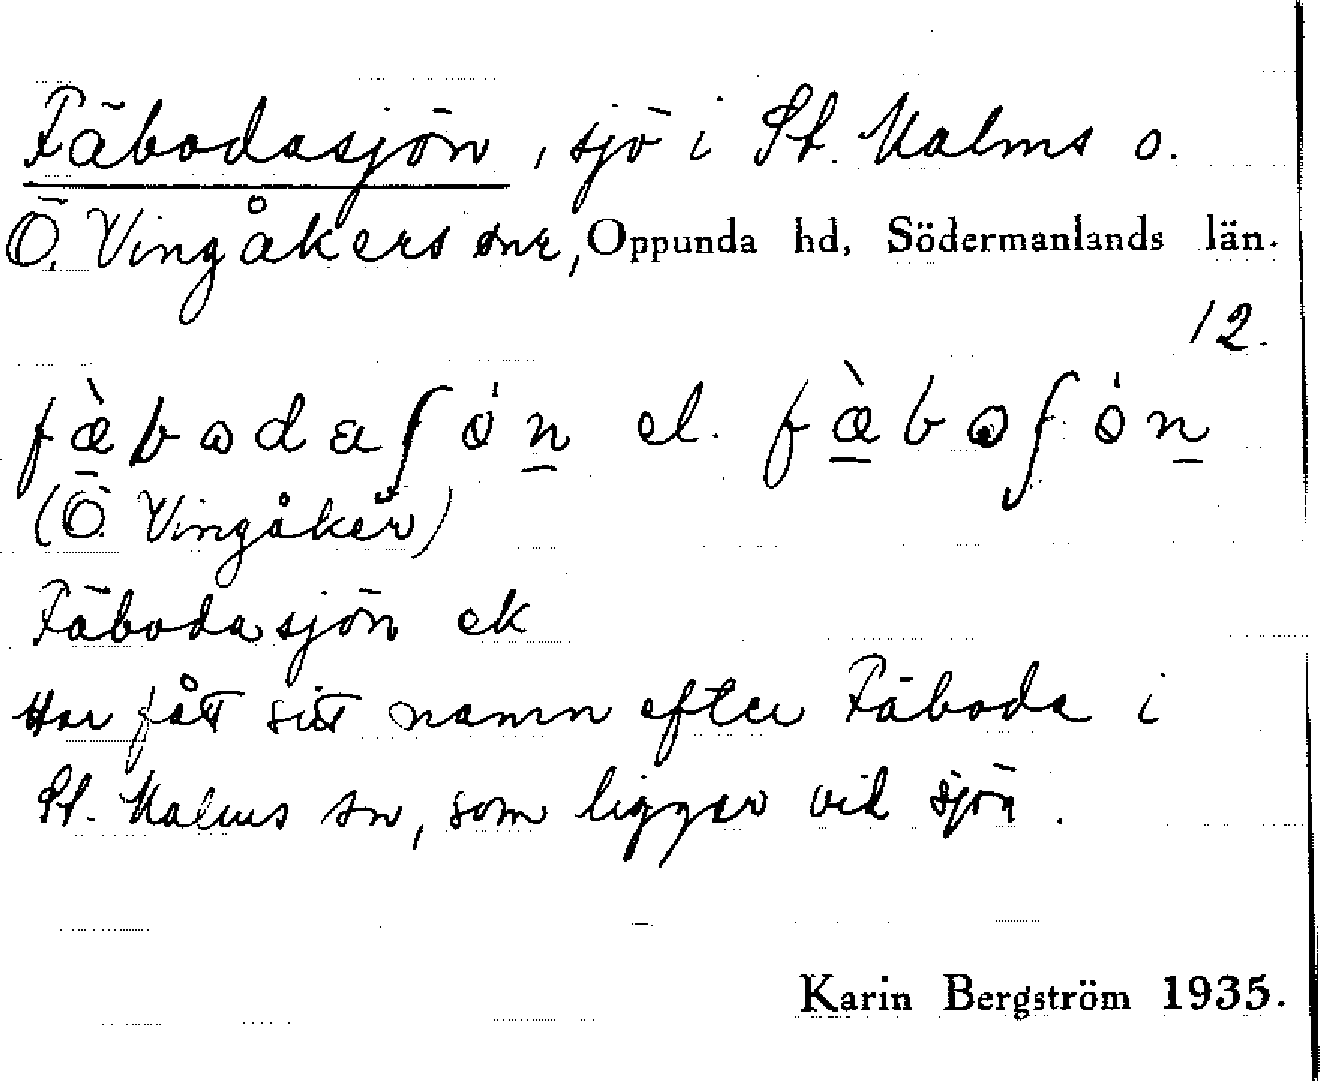 Fäbodasjön, sjö i St. Malms o.
Ö. Vingåkers snr, Oppunda hd, Södermanlands län.
12.
fæ̀bɷdaʃö́n el. fæ̀bɷʃö́n
(Ö. Vingåker)
Fäbodasjön ek
Har fått sitt namn efter Fäboda i
St. Malms sn, som ligger vid sjön.
Karin Bergström 1935.